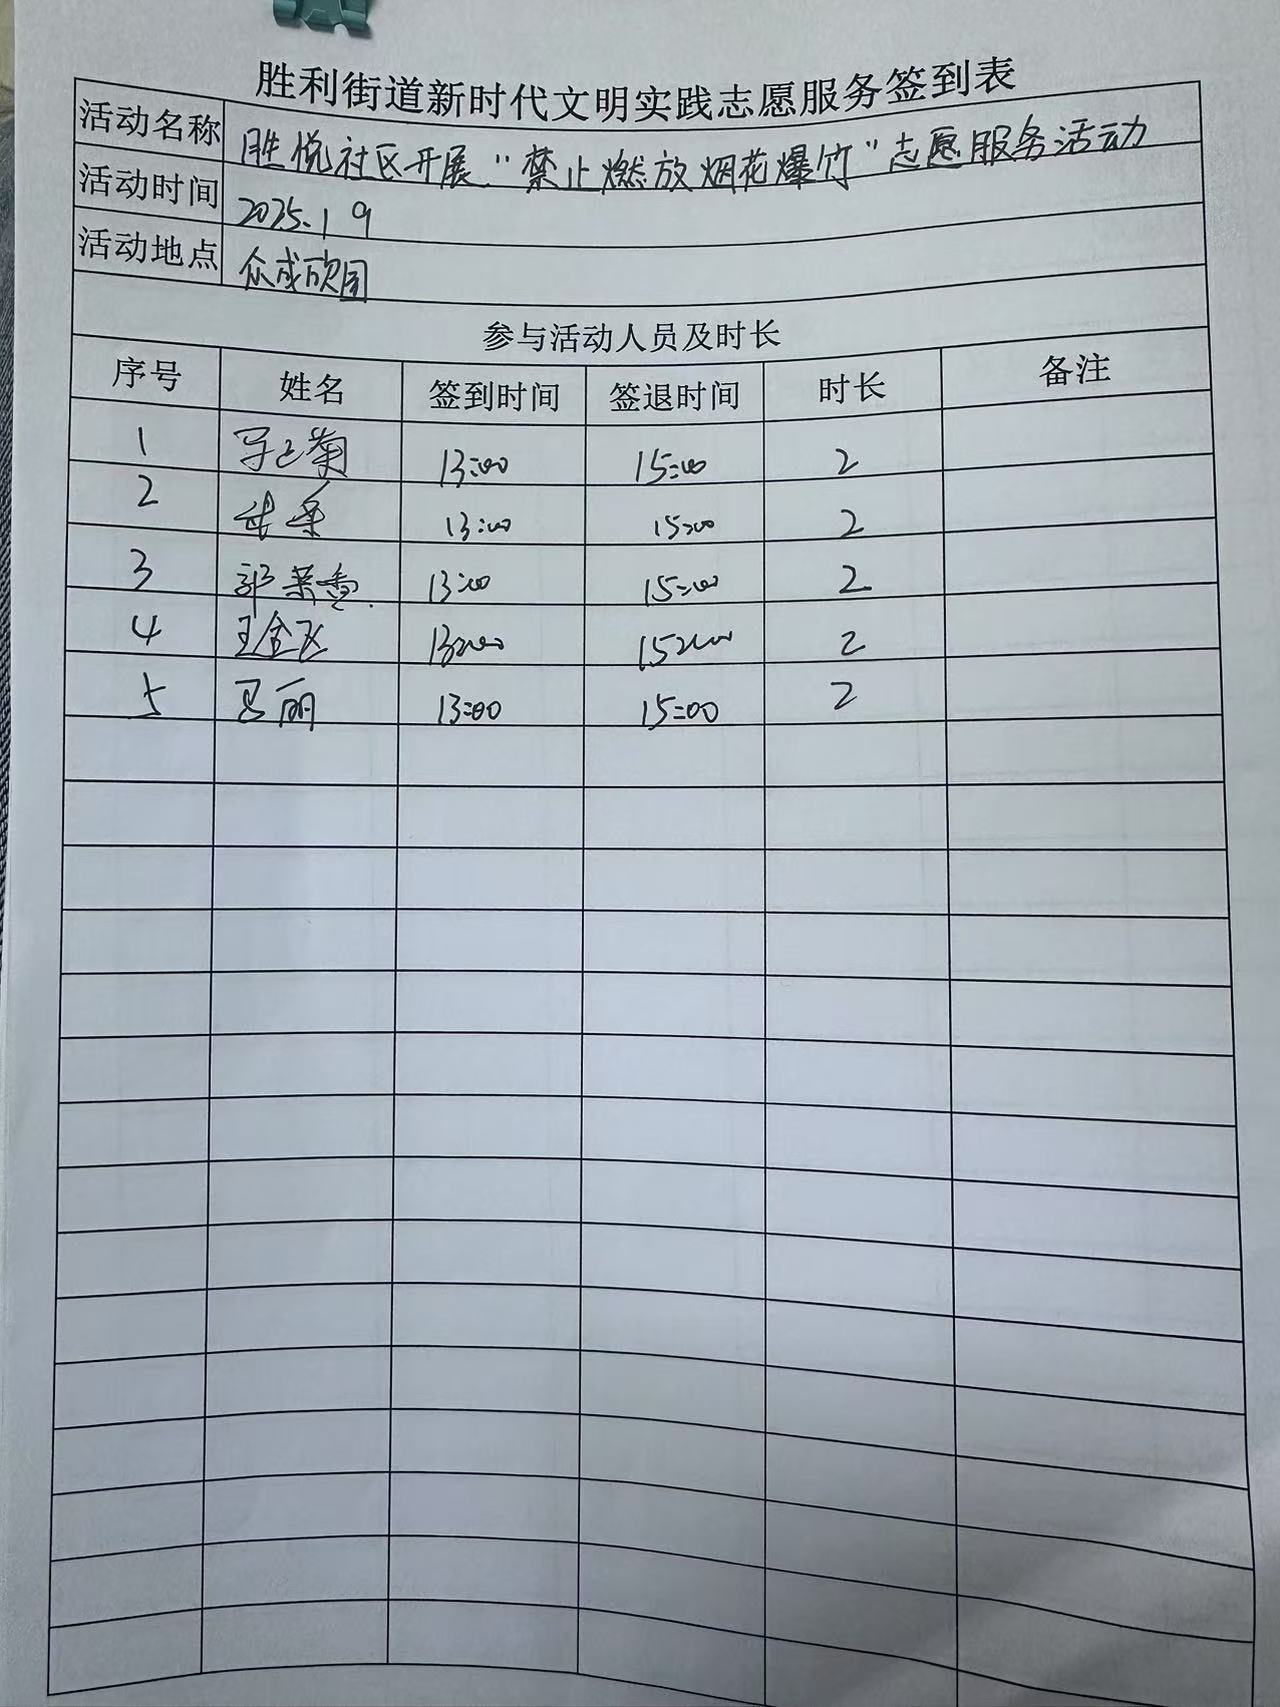 胜利街道新时代文明实践志愿服务签到表
活动名称 胜悦社区开展"禁止燃放烟花爆竹"志愿服务活动
活动时间 2025.1 9
活动地点 众成欣园
参与活动人员及时长
序号 姓名 签到时间 签退时间 时长 备注
1 13:00 15:00 2
2 13:00 15:00 2
3 郭荣香 13:00 15:00 2
4 王金飞 13:00 15:00 2
5 丽 13:00 15:00 2